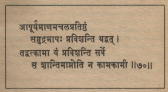 आपूर्यमाणमचलप्रतिष्ठं
समुद्रमापः प्रविशन्ति यद्वत् ।
तद्वत्कामा यं प्रविशन्ति सर्वे
स शान्तिमाप्नोति न कामकामी ॥७०॥